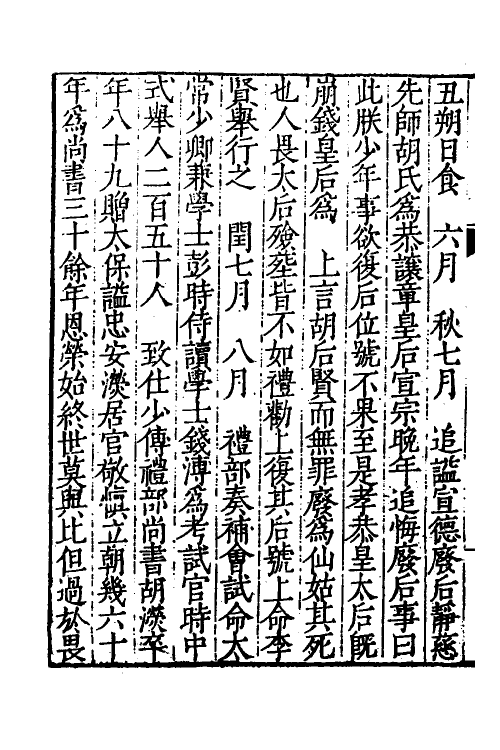 丑朔日食　六月　秋七月　追謚宣德廢后靜慈
先師胡氏為恭讓章皇后宣宗晚年追悔廢后事曰
此朕少年事欲復后位號不果至是孝恭皇太后既
崩錢皇后為　上言胡后賢而無罪廢為仙姑其死
也人畏太后殮塟皆不如禮勸上復其后號上命李
賢舉行之　閏七月　八月　禮部奏補會試命太
常少卿兼學士彭時侍讀學士錢溥為考試官時中
式舉人二百五十人　致仕少傅禮部尚書胡濙卒
年八十九贈太保謚忠安濙居官敬慎立朝幾六十
年為尚書三十餘年恩榮始終世莫與比但過於畏